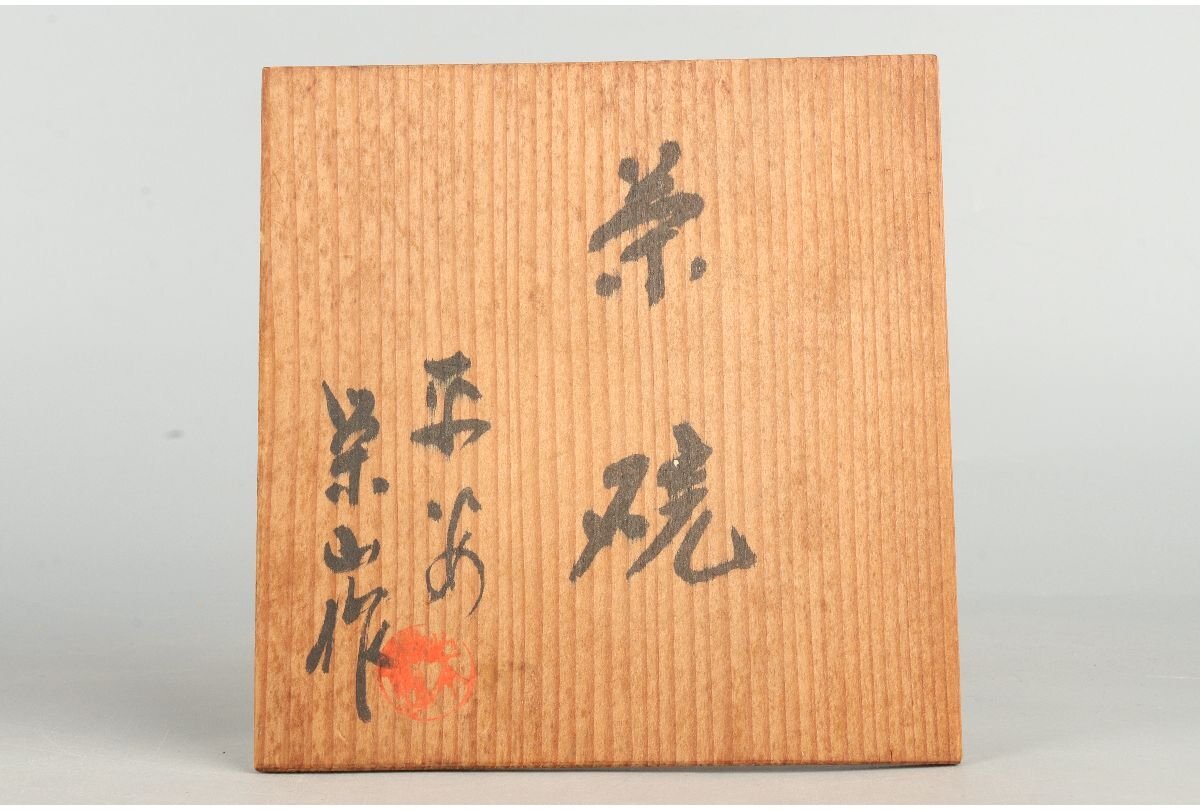 茶碗
平安
栄山作